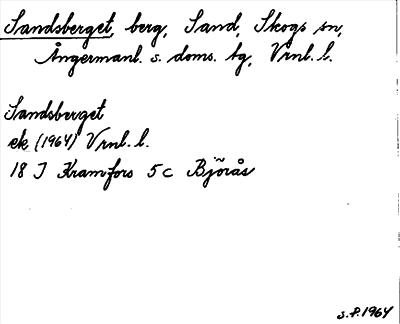 Sandsberget, berg, Sand, Skogs sn,
Ångermanl. s. doms. tg, Vrnl. l.
Sandsberget
ek (1964) Vrnl. l.
18 J Kramfors 5 c Bjõrås
s. P. 1964